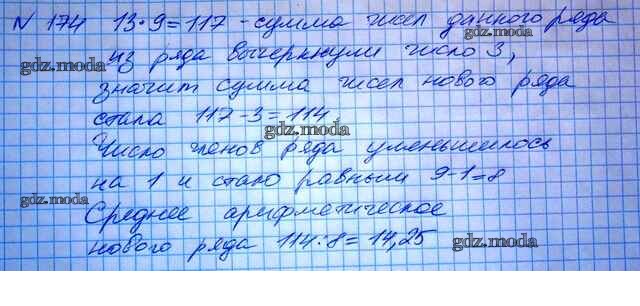 N 174 13·9=117 - сумма чисел данного ряда
из ряда вычеркнули число 3,
gdz.moda gdz.moda
значит сумма чисел нового ряда
стала 117-3=114
gdz.moda
Число членов ряда уменьшилось
на 1 и стало равным 9-1=8
gdz.moda gdz.moda
Среднее арифметическое
нового ряда 114:8=14,25
gdz.moda gdz.moda